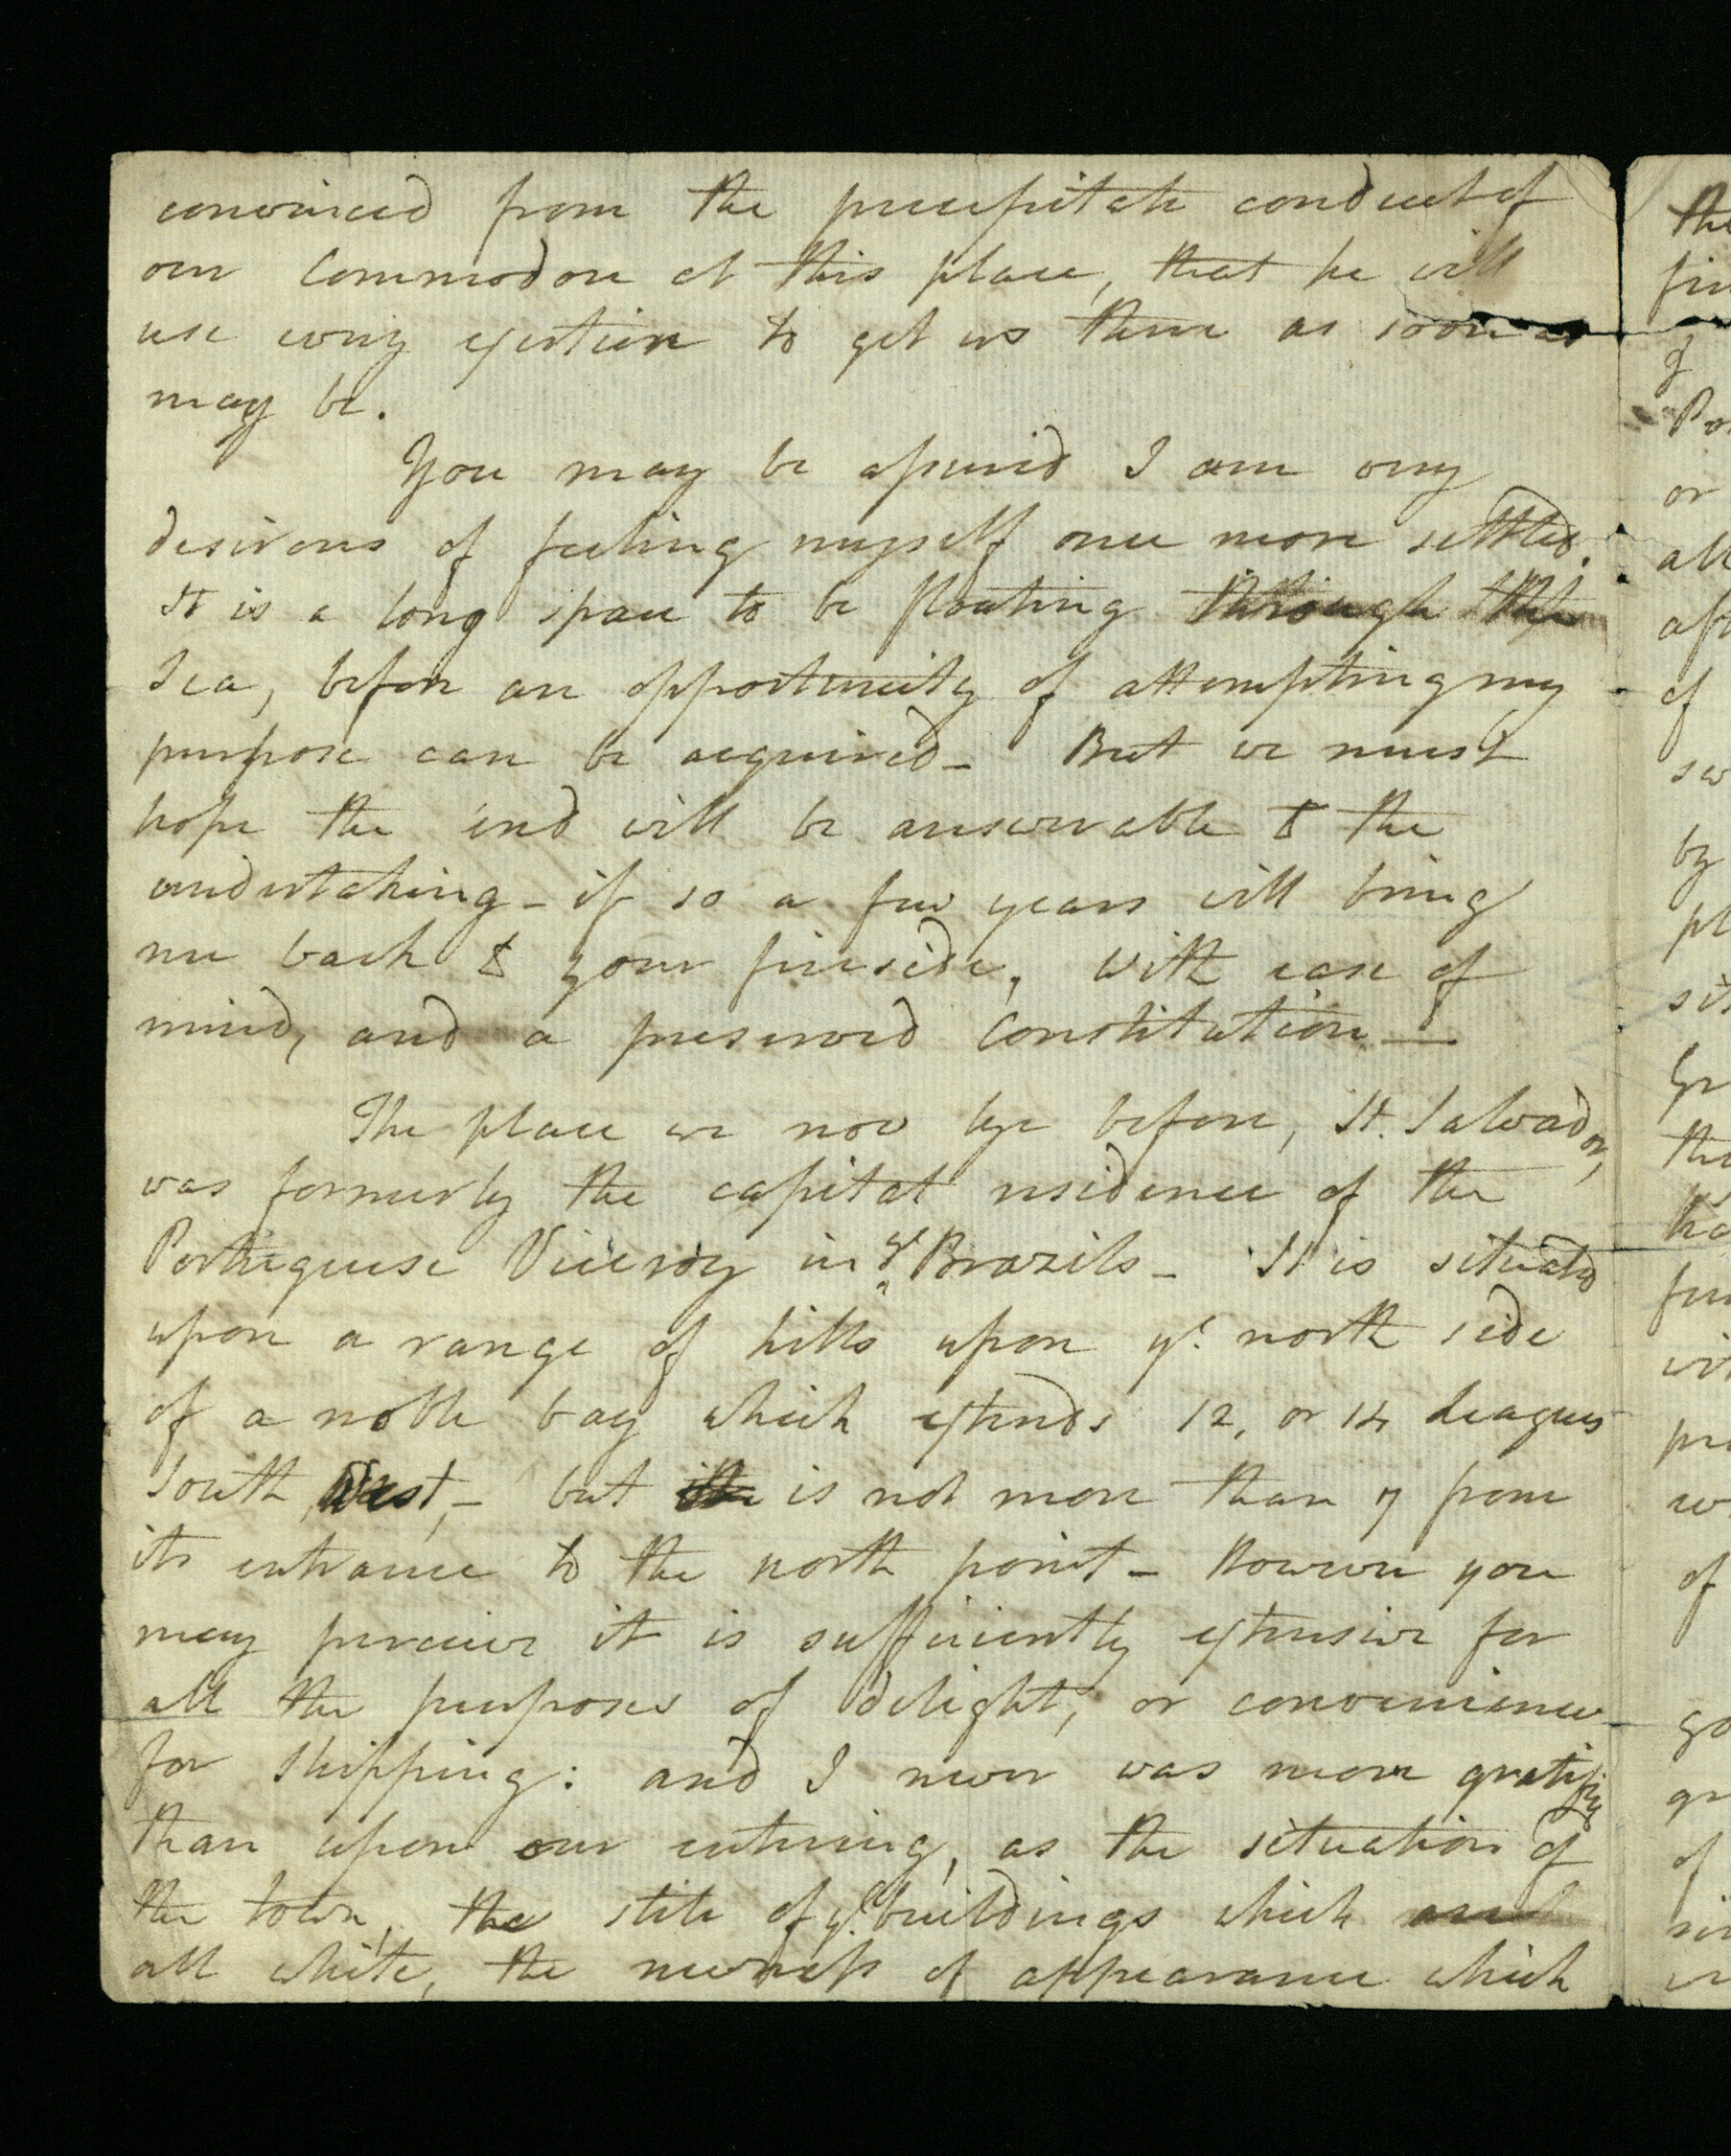 convinced from the precipitate conduct of
our Commodore at this place, that he will
use every exertion to get us there as soon as
may be.
You may be assured I am very
desirous of feeling myself once more settled.
It is a long space to be floating through the
Sea, before an opportunity of attempting my
purpose can be acquired – But we must
hope the end will be answerable to the
undertaking – if so a few years will bring
me back to your fireside, with ease of
mind, and a preserved Constitution —
The place we now lye before, St. Salvador,
was formerly the capital residence of the
Portuguese Viceroy in ye Brazils – It is situated
upon a range of hills upon ye north side
of a noble bay which extends 12, or 14 leagues
South West, – but is not more than 7 from
its entrance to the north point – However you
may perceive it is sufficiently extensive for
all the purposes of delight, or convenience
for shipping: and I never was more gratified
than upon our entering, as the situation of
the town, the stile of ye buildings which are
all white, the newness of appearance which
the
fir
of
Po
or
all
aft
of
sw
by
pl
sit
Gr
the
ha
fur
wi
pr
w
of
go
gr
of